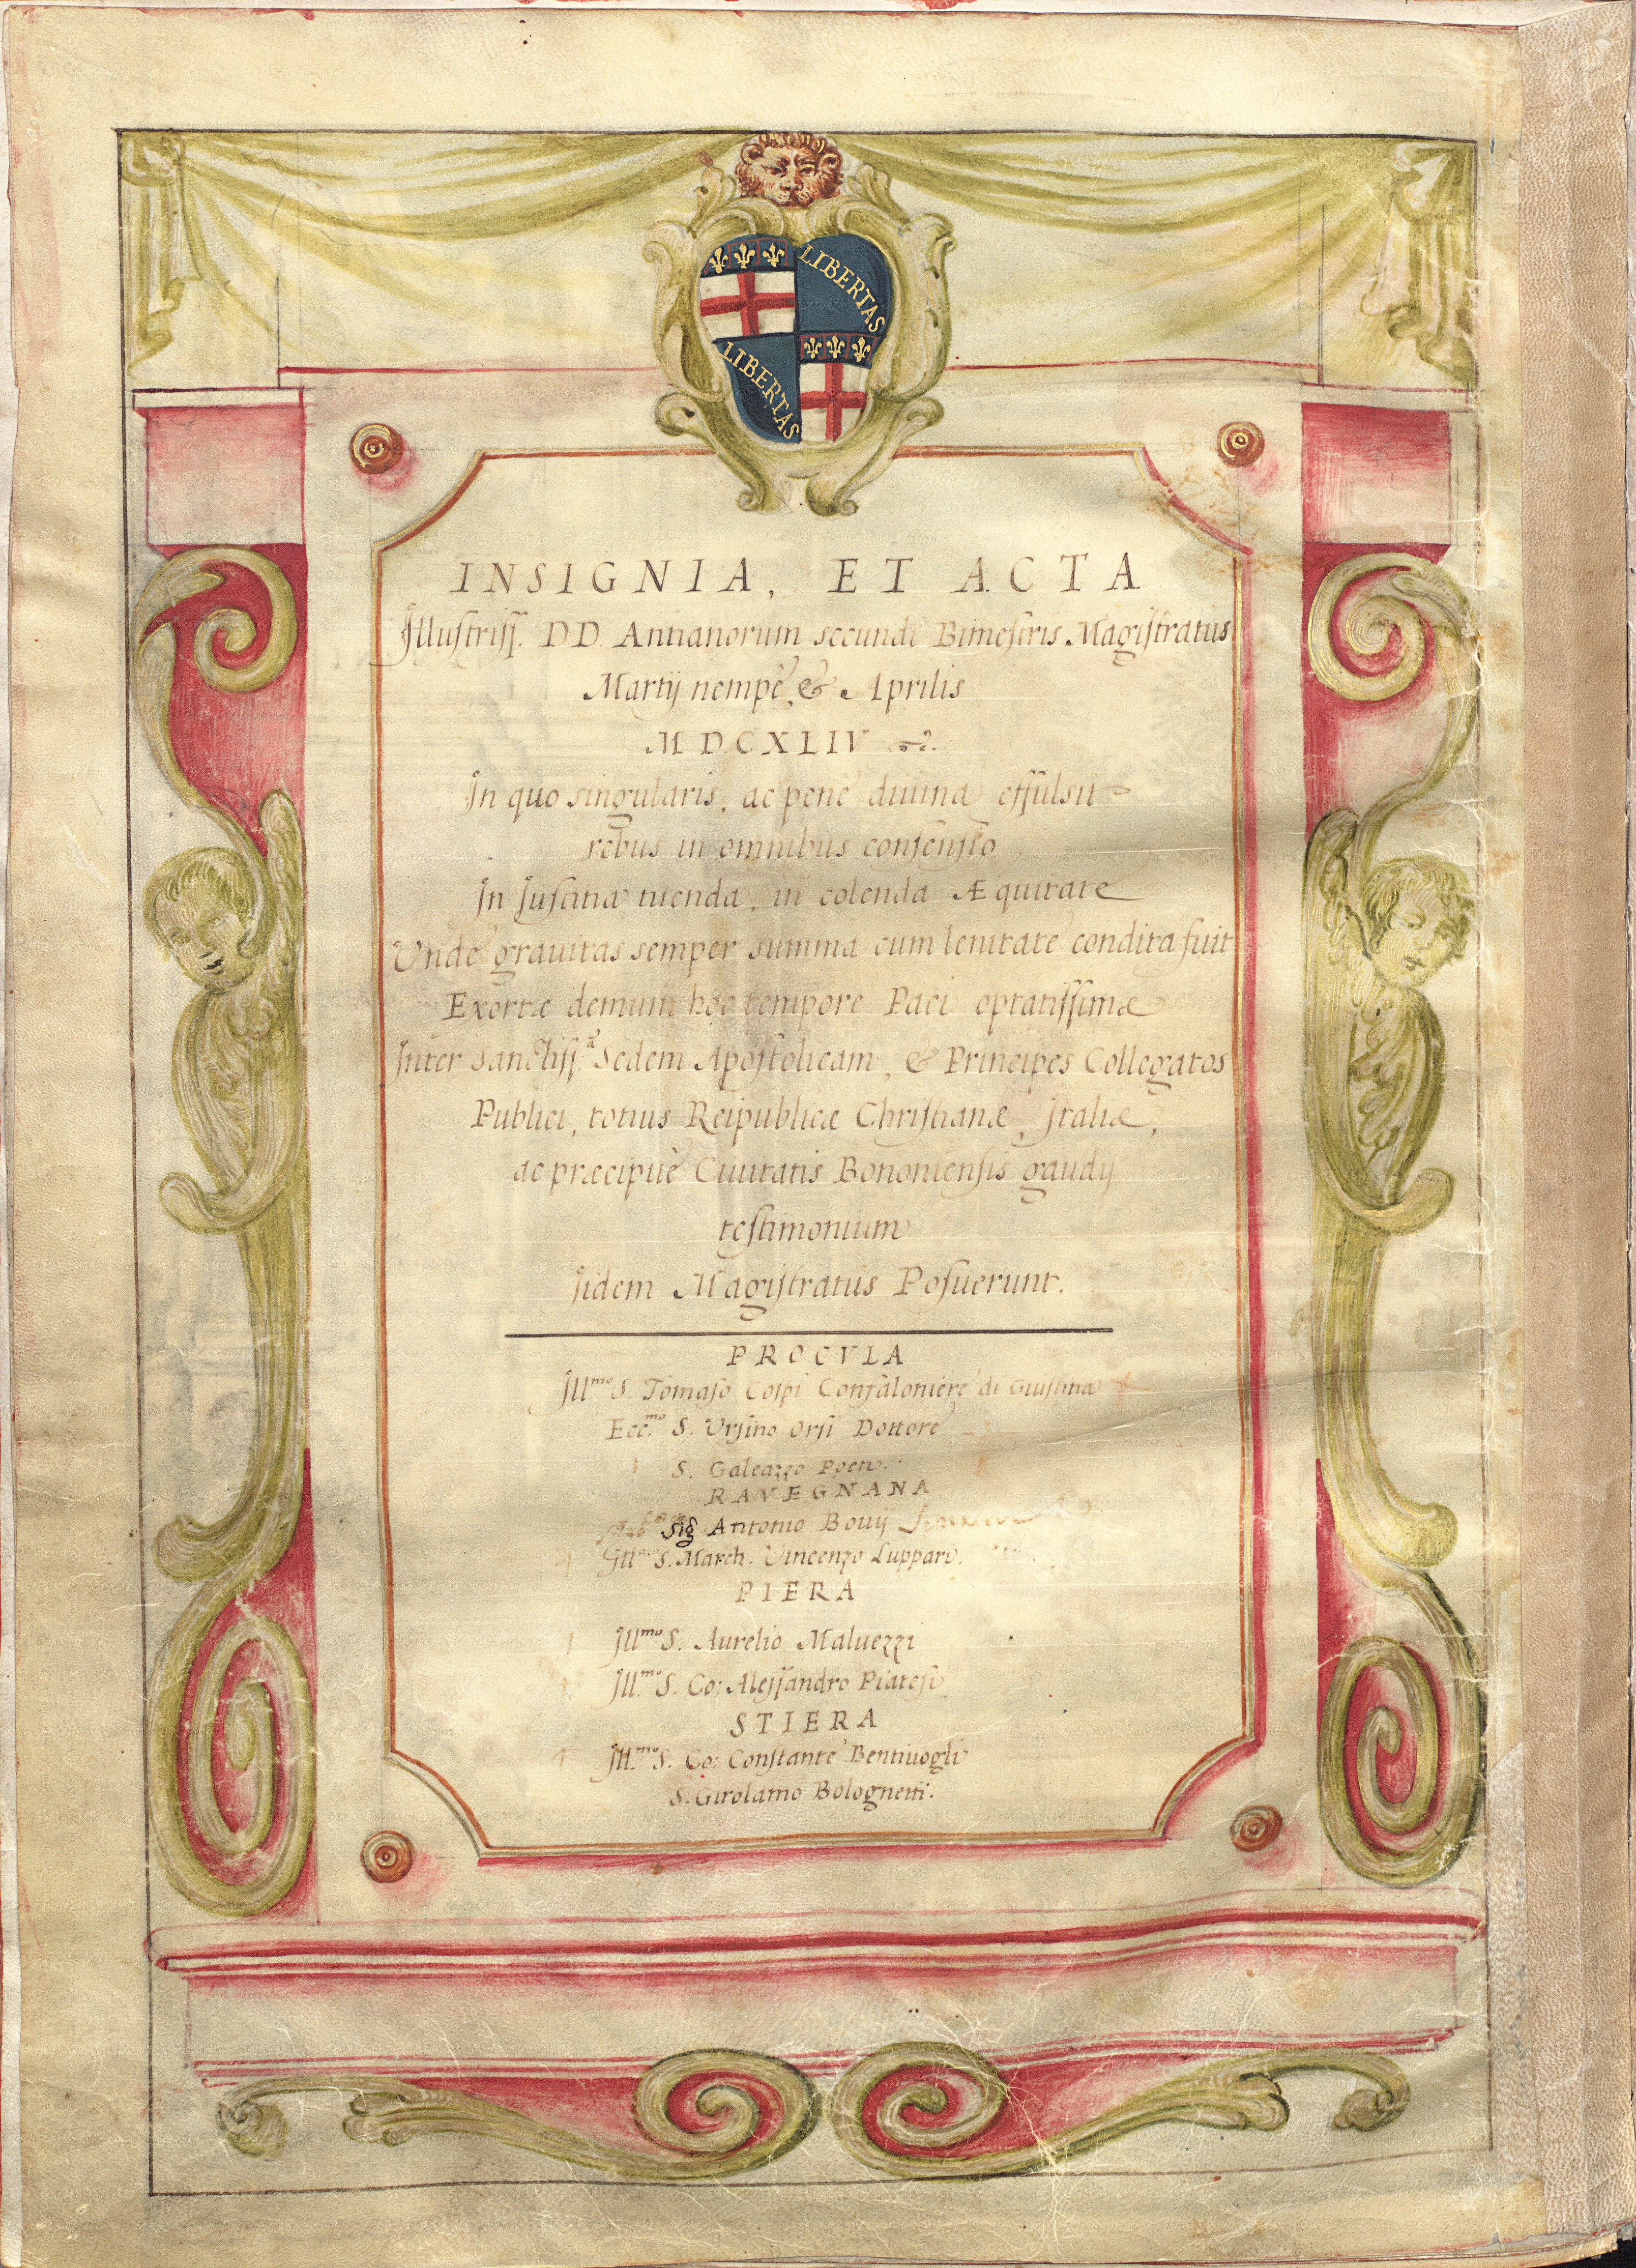 LIBERTAS
LIBERTAS
INSIGNIA, ET ACTA
Illustriss. DD. Antianorum secundi Bimestris Magistratus
Martij nempè, & Aprilis
MDCXLIV
In quo singularis, ac penè diuina effulsit
rebus in omnibus consensio
In Iustitia tuenda, in colenda Æquitate
Vnde grauitas semper summa cum lenitate condita fuit
Exortæ demum hoc tempore Paci optatissimæ
Inter Sanctiss.ᵃ Sedem Apostolicam, & Principes Collegatos
Publici, totius Reipublicæ Christianæ, Italiæ,
ac præcipuè Ciuitatis Bononiensis gaudij
testimonium
Iidem Magistratus Posuerunt.
PROCVLA
Ill.ᵐᵒ S. Tomaso Cospi Confaloniere di Giustitia
Ecc.ᵐᵒ S. Vrsino Orsi Dottore
S. Galeazzo Poeti.
RAVEGNANA
Sig Antonio Bouij
Ill.ᵐᵒ S. March. Vincenzo Luppari.
PIERA
Ill.ᵐᵒ S. Aurelio Maluezzi
Ill.ᵐᵒ S. Co: Alessandro Piatesi
STIERA
Ill.ᵐᵒ S. Co: Constante Bentiuogli
S. Girolamo Bolognetti.